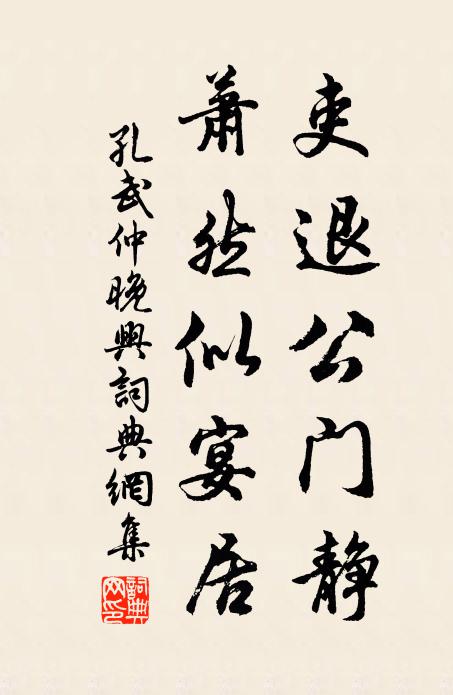 吏退公门静
萧然似宴居
孔武仲晚興詞典網集
詞典网印